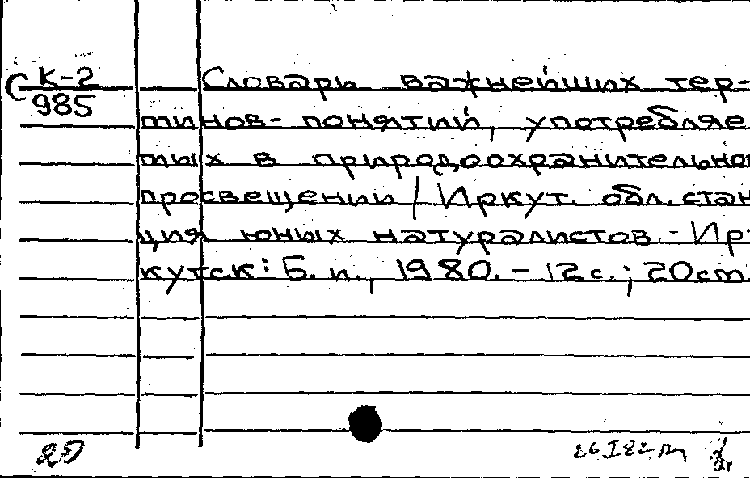 С К-2
985
Словарь важнейших тер-
минов-понятий, употребляе
мых в природоохранительно
просвещении / Иркут. обл. стан
ция юных натуралистов. - Ир
кутск: Б. и., 1980. - 12 с.; 20 см